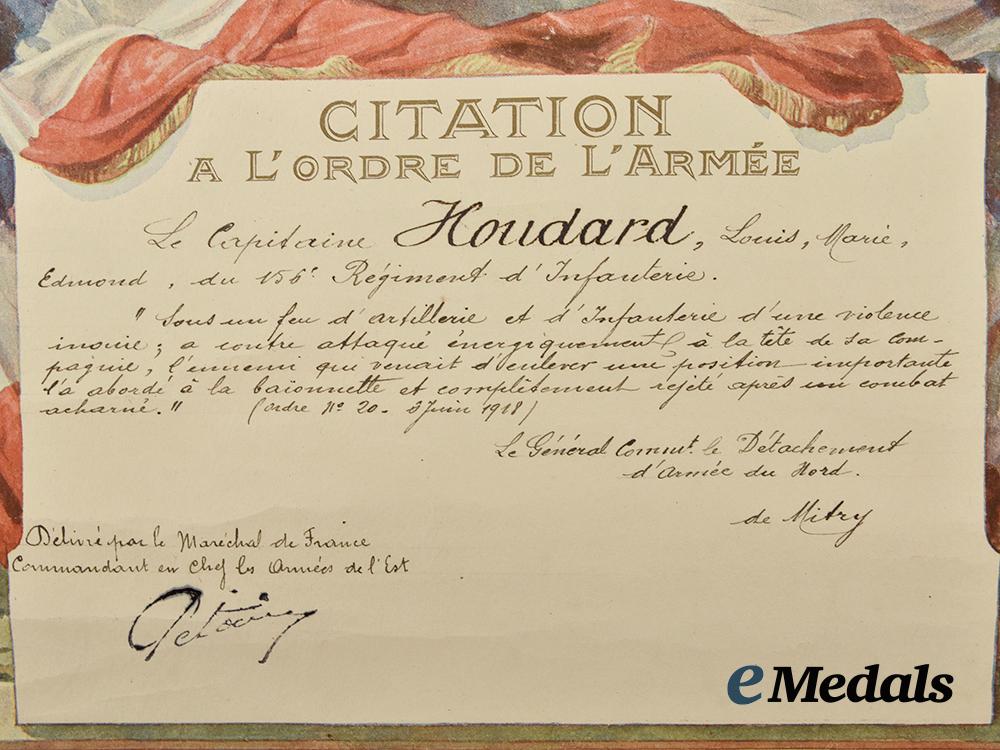 CITATION
A L'ORDRE DE L'ARMÉE
Le Capitaine Houdard, Louis, Marie,
Edmond, du 156e Régiment d'Infanterie.
"Sous un feu d'artillerie et d'Infanterie d'une violence
inouïe; a contre attaqué énergiquement à la tête de sa com-
pagnie, l'ennemi qui venait d'enlever une position importante
l'a abordé à la baïonnette et complètement rejeté après un combat
acharné." (ordre No 20. Juin 1918)
Le Général Commt. le Détachement
d'Armée du Nord.
de Mitry
Délivré par le Maréchal de France
Commandant en Chef les Armées de l'Est
eMedals